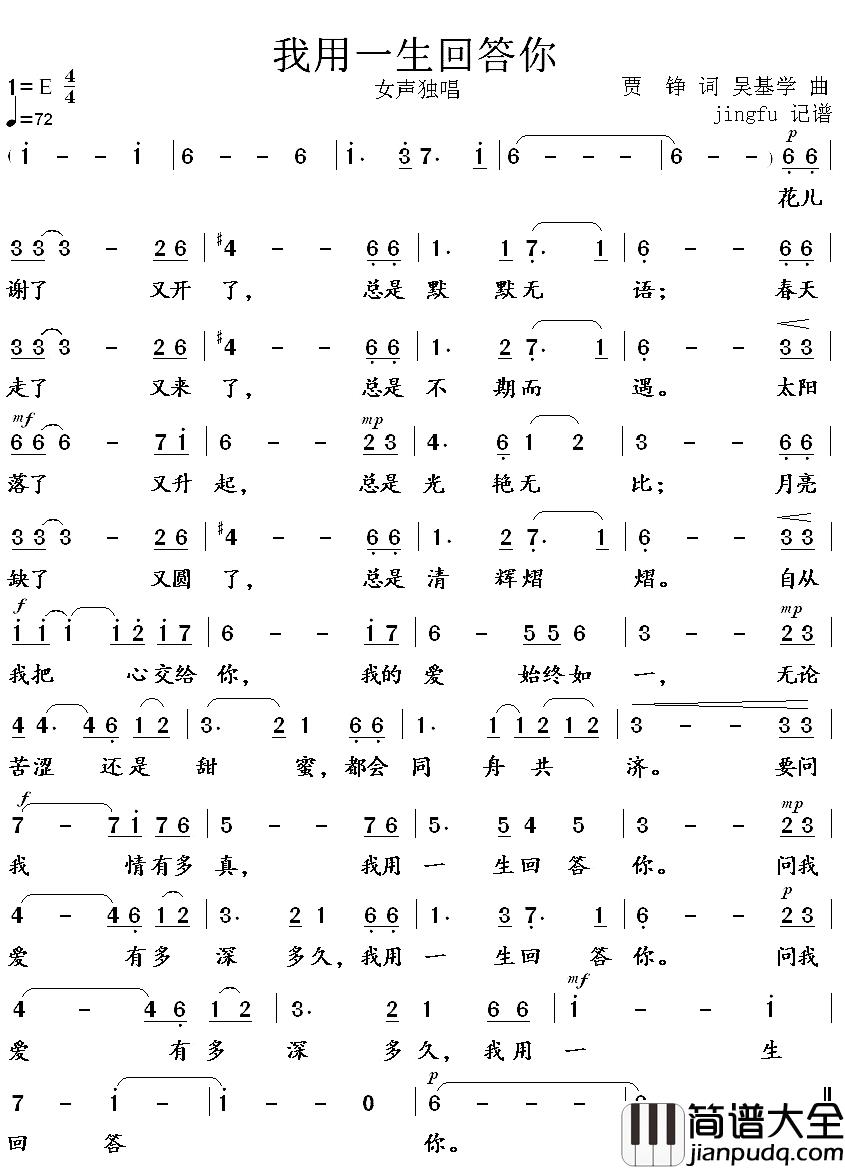 我用一生回答你
1=E 4/4
女声独唱
贾 铮 词 吴基学 曲
♩=72
jingfu 记谱
p
( i - - i | 6 - - 6 | i· 3 7· i | 6 - - - | 6 - - ) 6 6 |
花儿
3 3 3 - 2 6 | #4 - - 6 6 | 1· 1 7· 1 | 6 - - 6 6 |
谢了 又开 了， 总是 默 默无 语； 春天
3 3 3 - 2 6 | #4 - - 6 6 | 1· 2 7· 1 | 6 - - 3 3 |
走了 又来 了， 总是 不 期而 遇。 太阳
mf mp
6 6 6 - 7 i | 6 - - 2 3 | 4· 6 1 2 | 3 - - 6 6 |
落了 又升 起， 总是 光 艳无 比； 月亮
3 3 3 - 2 6 | #4 - - 6 6 | 1· 2 7· 1 | 6 - - 3 3 |
缺了 又圆 了， 总是 清 辉熠 熠。 自从
f mp
i i i i 2 i 7 | 6 - - i 7 | 6 - 5 5 6 | 3 - - 2 3 |
我把 心交给 你， 我的 爱 始终如 一， 无论
4 4· 4 6 1 2 | 3· 2 1 6 6 | 1· 1 1 2 1 2 | 3 - - 3 3 |
苦涩 还是 甜 蜜，都会 同 舟 共 济。 要问
f mp
7 - 7 i 7 6 | 5 - - 7 6 | 5· 5 4 5 | 3 - - 2 3 |
我 情有多 真， 我用 一 生回 答 你。 问我
p
4 - 4 6 1 2 | 3· 2 1 6 6 | 1· 3 7· 1 | 6 - - 2 3 |
爱 有多 深 多久，我用 一 生回 答 你。 问我
mf
4 - 4 6 1 2 | 3· 2 1 6 6 | i - - i |
爱 有多 深 多久，我用 一 生
p
7 - i - | i - - 0 | 6 - - -
回 答 你。
简谱大全
jianpudq.com